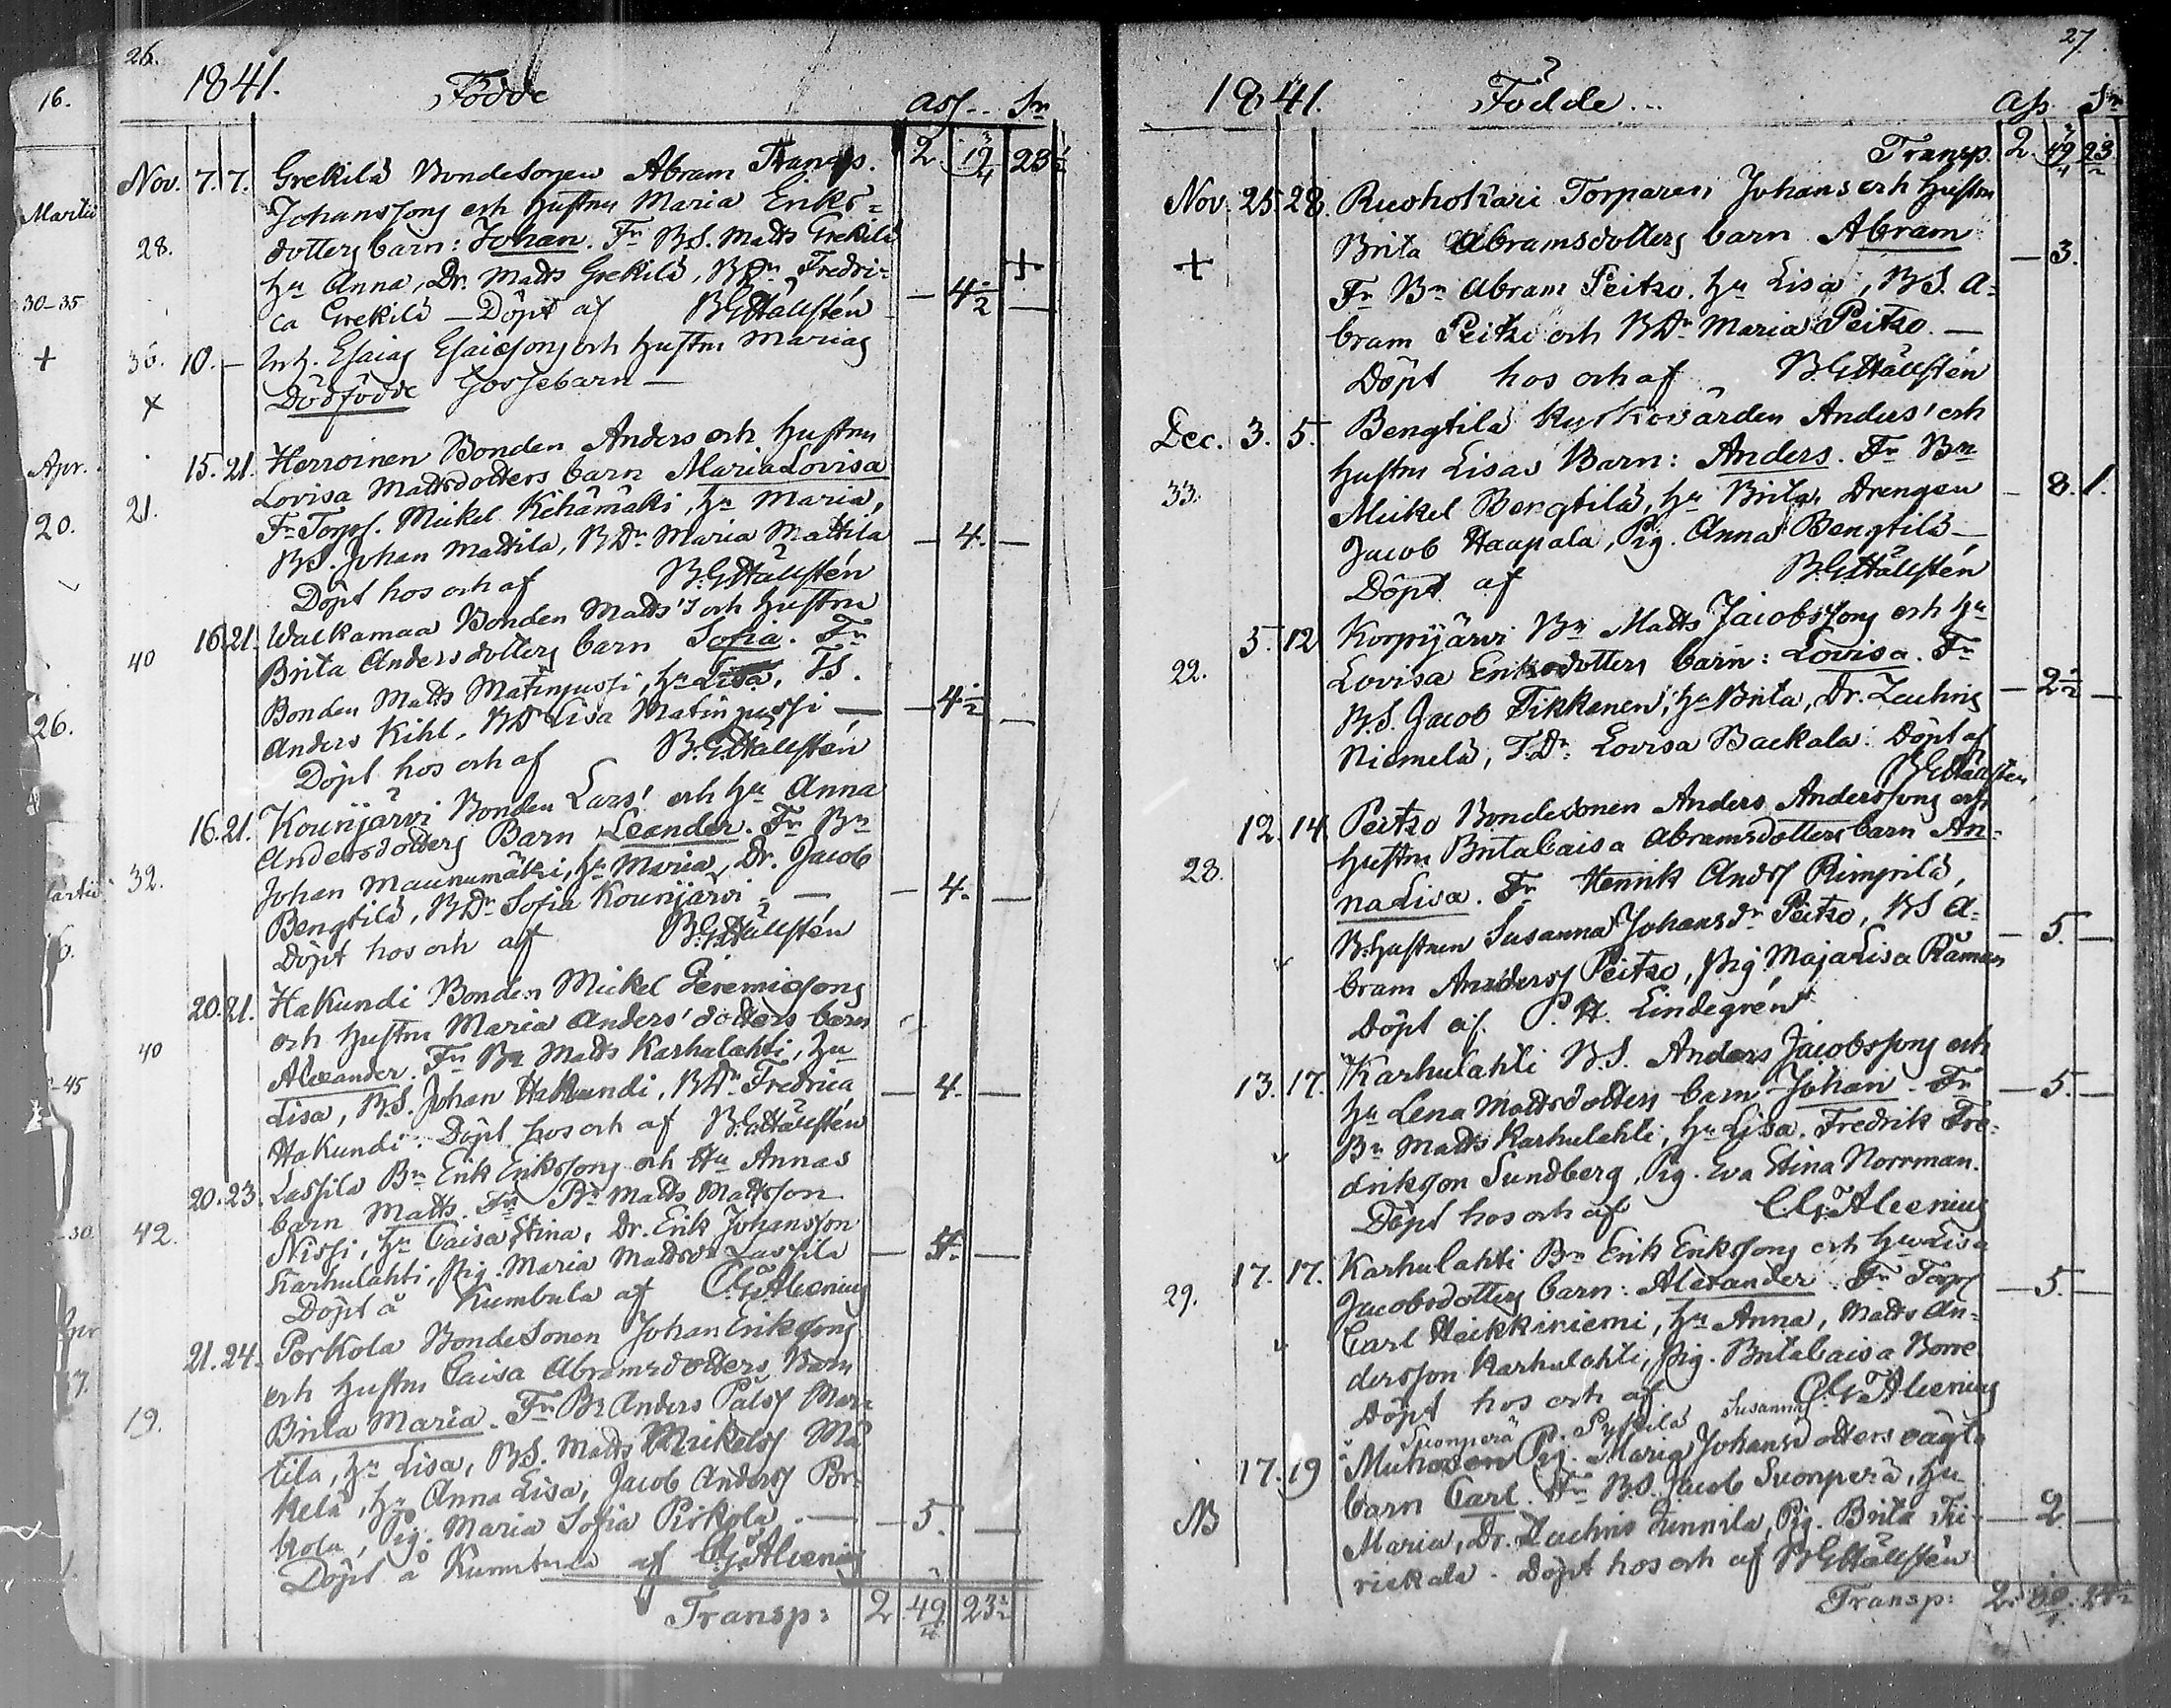 26.
1841. Födde ass. Sr
Transp. 2. 19 3/4 23 1/2
Nov. 7. 7. Grekilä Bondesonen Abram
Johanssons och hustru Maria Eriks=
28. dotters barn: Johan. Fr BS. Matts Grekilä
hu Anna, Dr. Matts Grekilä, BDr Fredri= +
ca Grekilä — Döpt af B:G:Hällstén — 4 1/2 —
36. 10. — Inh. Esaias Esaiesons och hustru Marias
x Dödfödde Gossebarn —
15. 21. Herroinen Bonden Anders och hustru
Lovisa Mattsdotters barn Maria Lovisa
21. Fr Torp. Mickel Kihämäki, hu Maria,
BS. Johan Mattila, BDr Maria Mattila — 4. —
Döpt hos och af B:G:Hällstén
16. 21. Walkamaa Bonden Matts's och hustru
40 Brita Andersdotters barn Sofia. Fr
Bonden Matts Matinjussi, hu Lisa, T.S.
Anders Kihl, BDr Lisa Matinjussi — — 4 1/2 —
Döpt hos och af B:G:Hällstén
16. 21. Kounijärvi Bonden Lars' och hu Anna
Andersdotters Barn Leander. Fr Bn
32. Johan Maunumäki, hu Maria, Dr. Jacob
Bengtilä, BDr Sofia Kounijärvi. — — 4. —
Döpt hos och af B:G:Hällstén
20. 21. Hakundi Bonden Mickel Jeremiesons
och hustru Maria Anders'dotters barn
40 Alexander. Fr Bn Matts Karhulahti, hu
Lisa, BS. Johan Hakundi, BDr Fredrica — 4. —
Hakundi. Döpt hos och af B:G:Hällstén
20. 23. Lassila Bn Erik Erikssons och Hu Annas
barn Matts. Fr Bn Matts Mattsson
42. Nissi, hu Caisa Stina, Dr. Erik Johansson
Karhulahti, Pig. Maria Mattsdr Lassila — 4. —
Döpt å Kumbula af C.G. Alcenius
21. 24. Porkola Bondesonen Johan Erikssons
och hustru Caisa Abramsdotters Barn
19. Brita Maria. Fr Bn Anders Pålss Mar=
tila, hu Lisa, BS. Matts Mickelss Mä
kelä, hu Anna Lisa, Jacob Anderss Por=
kola, Pig. Maria Sofia Pirkola. — — 5. —
Döpt å Kumbula af C.G. Alcenius
Transp: 2 49 3/4 23 1/2
27.
1841. Födde ass Sr
Transp. 2. 49 3/4 23 1/2
Nov. 25. 28. Ruohokari Torparen Johans och hustru
+ Brita Abramsdotters barn Abram — 3.
Fr Bn Abram Peitso. hu Lisa, BS. A=
bram Peitso och BDr Maria Peitso. —
Döpt hos och af B:G:Hällstén
Dec. 3. 5. Bengtilä Kyrkovärden Anders' och
hustru Lisas Barn: Anders. Fr Bn
33. Mickel Bengtilä, hu Brita, Drengen — 8. 1.
Jacob Haapala, Pig. Anna Bengtilä —
Döpt af B:G:Hällstén
5. 12 Korpijärvi Bn Matts Jacobssons och hu
22. Lovisa Eriksdotters barn: Lovisa. Fr
BS. Jacob Tikkanen, hu Brita, Dr. Zachris — 2 1/2 —
Niemelä, T.Dr. Lovisa Backala. Döpt af
B:G:Hällstén
12. 14. Peitso Bondesonen Anders Anderssons och
hustru Brita Caisa Abramsdotters barn An=
28. na Lisa. Fr Henrik Anderss Rimpilä,
B:hustrun Susanna Johansdr Peitso, BS A= — 5. —
bram Anderss Peitso, Pig Maja Lisa Råman
Döpt af P. H. Lindegrén
13. 17. Karhulahti B.S. Anders Jacobssons och
hu Lena Mattsdotters barn Johan. Fr — 5. —
Bn Matts Karhulahti, hu Lisa. Fredrik Fre=
driksson Sundberg, Pig. Eva Stina Norrman.
Döpt hos och af C.G. Alcenius
17. 17. Karhulahti Bn Erik Erikssons och hu Lisa
29. Jacobsdotters barn: Alexander. Fr Torp — 5. —
Carl Heikkiniemi, hu Anna, Matts An=
dersson Karhulahti, Pig. Brita Caisa Borre
Döpt hos och af C.G. Alcenius
Suonperä P. Pyssilä Susanna
17. 19 Muhosen Pig. Maria Johansdotters oägta
barn Carl. Fr B.S. Jacob Suonperä, hu
NB Maria, Dr. Zachris Junnila, Pig. Brita Tii= — 2. —
rickala. Döpt hos och af B:G:Hällstén
Transp: 2. 80 1/4. 24 1/2
16.
Martii
30-35
+
Apr.
20.
26.